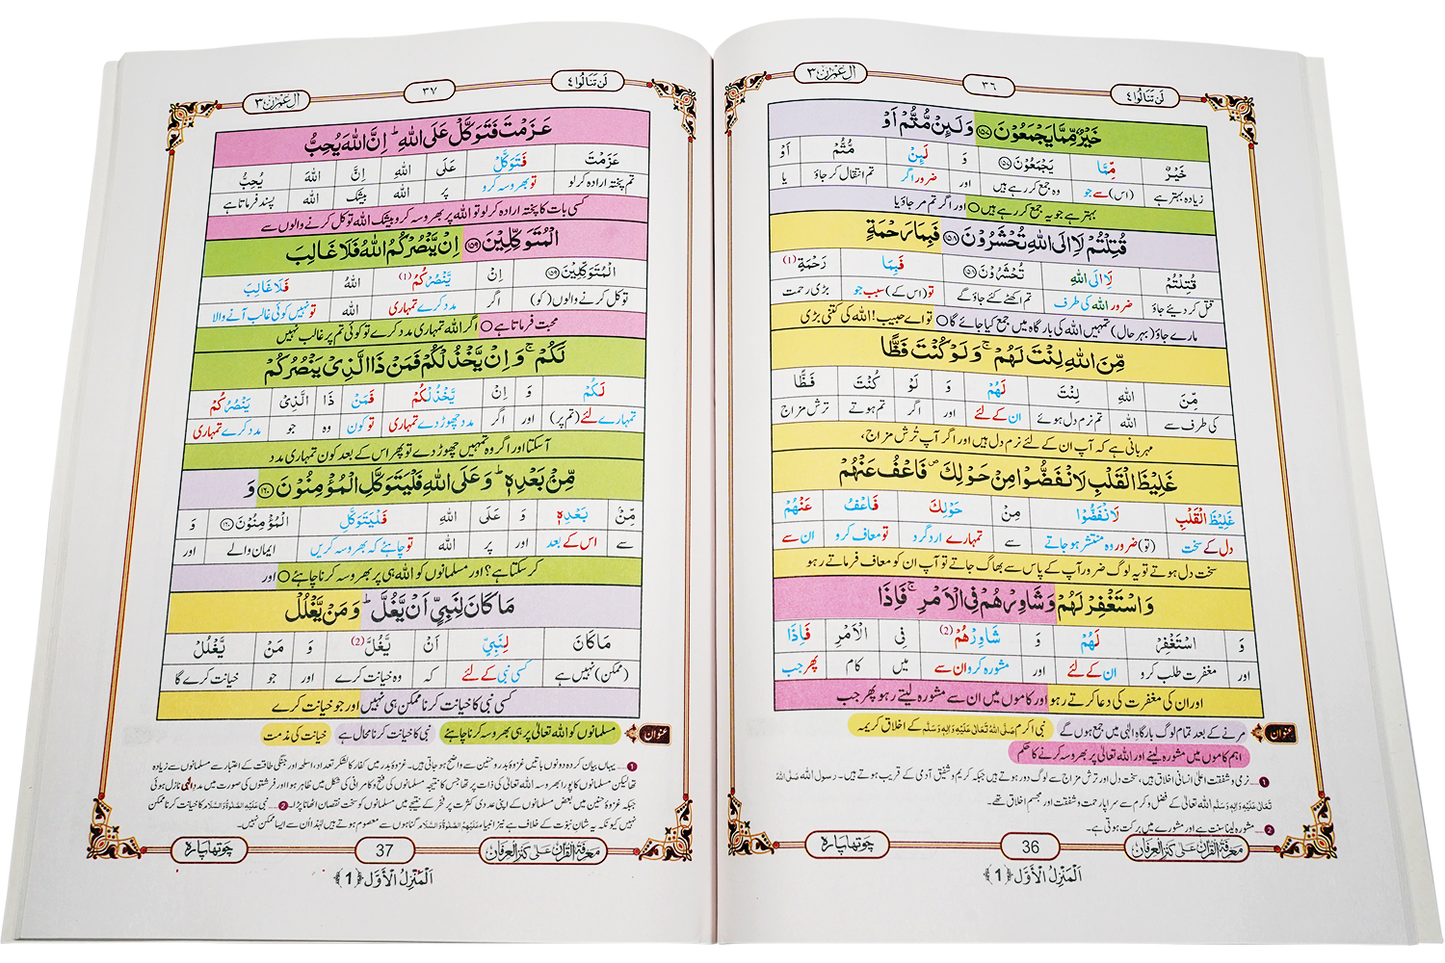 اٰل عمرٰن ٣
٣٦
لَنْ تَنَالُوا ٤
خَیْرٌ مِّمَّا یَجْمَعُوْنَ ﴿۱۵۷﴾ وَ لَىِٕنْ مُّتُّمْ اَوْ
خَیْرٌ مِّمَّا یَجْمَعُوْنَ ﴿۱۵۷﴾ وَ لَىِٕنْ مُّتُّمْ اَوْ
زیادہ بہتر ہے (اس) سے جو وہ جمع کر رہے ہیں اور ضرور اگر تم انتقال کر جاؤ یا
بہتر ہے جو یہ جمع کر رہے ہیں ○ اور اگر تم مر جاؤ یا
قُتِلْتُمْ لَاۡاِلَى اللّٰهِ تُحْشَرُوْنَ ﴿۱۵۸﴾ فَبِمَا رَحْمَةٍ
قُتِلْتُمْ لَاۡاِلَى اللّٰهِ تُحْشَرُوْنَ ﴿۱۵۸﴾ فَبِمَا رَحْمَةٍ (1)
قتل کر دیئے جاؤ ضرور اللہ کی طرف تم اکٹھے کئے جاؤ گے تو (اس کے) سبب جو بڑی رحمت
مارے جاؤ (بہر حال) تمہیں اللہ کی بارگاہ میں جمع کیا جائے گا ○ تو اے حبیب! اللہ کی کتنی بڑی
مِّنَ اللّٰهِ لِنْتَ لَهُمْ ۚ وَ لَوْ كُنْتَ فَظًّا
مِّنَ اللّٰهِ لِنْتَ لَهُمْ وَ لَوْ كُنْتَ فَظًّا
کی طرف سے اللہ تم نرم دل ہوئے ان کے لئے اور اگر تم ہوتے ترش مزاج
مہربانی ہے کہ آپ ان کے لئے نرم دل ہیں اور اگر آپ تُرش مزاج،
غَلِیْظَ الْقَلْبِ لَانْفَضُّوْا مِنْ حَوْلِكَ ۪ فَاعْفُ عَنْهُمْ
غَلِیْظَ الْقَلْبِ لَانْفَضُّوْا مِنْ حَوْلِكَ فَاعْفُ عَنْهُمْ
دل کے سخت (تو) ضرور وہ منتشر ہو جاتے سے تمہارے ارد گرد تو معاف کرو ان سے
سخت دل ہوتے تو یہ لوگ ضرور آپ کے پاس سے بھاگ جاتے تو آپ ان کو معاف فرماتے رہو
وَ اسْتَغْفِرْ لَهُمْ وَ شَاوِرْهُمْ فِی الْاَمْرِ ۚ فَاِذَا
وَ اسْتَغْفِرْ لَهُمْ وَ شَاوِرْهُمْ (2) فِی الْاَمْرِ فَاِذَا
اور مغفرت طلب کرو ان کے لئے اور مشورہ کرو ان سے میں کام پھر جب
اور ان کی مغفرت کی دعا کرتے رہو اور کاموں میں ان سے مشورہ لیتے رہو پھر جب
عنوان مرنے کے بعد تمام لوگ بارگاہِ الٰہی میں جمع ہوں گے نبی اکرم صَلَّی اللہُ تَعَالٰی عَلَیْہِ وَاٰلِہٖ وَسَلَّم کے اخلاق کریمہ
اہم کاموں میں مشورہ لینے اور اللہ تعالیٰ پر بھروسہ کرنے کا حکم
1 .....نرمی و شفقت اعلیٰ انسانی اخلاق ہیں، سخت دل اور ترش مزاج سے لوگ دور ہوتے ہیں جبکہ کریم و شفیق آدمی کے قریب ہوتے ہیں۔ رسول اللہ صَلَّی اللہُ
تَعَالٰی عَلَیْہِ وَاٰلِہٖ وَسَلَّم اللہ تعالیٰ کے فضل و کرم سے سراپا رحمت و شفقت اور مجسم اخلاق تھے۔
2 .....مشورہ لینا سنت ہے اور مشورے میں برکت ہوتی ہے۔
معرفۃ القرآن علٰی کنز العرفان
36
چوتھا پارہ
اَلْمَنْزِلُ الْاَوَّل ﴿1﴾
اٰل عمرٰن ٣
٣٧
لَنْ تَنَالُوا ٤
عَزَمْتَ فَتَوَكَّلْ عَلَى اللّٰهِ ؕ اِنَّ اللّٰهَ یُحِبُّ
عَزَمْتَ فَتَوَكَّلْ عَلَى اللّٰهِ اِنَّ اللّٰهَ یُحِبُّ
تم پختہ ارادہ کر لو تو بھروسہ کرو پر اللہ بیشک اللہ پسند فرماتا ہے
کسی بات کا پختہ ارادہ کر لو تو اللہ پر بھروسہ کرو بیشک اللہ توکل کرنے والوں سے
الْمُتَوَكِّلِیْنَ ﴿۱۵۹﴾ اِنْ یَّنْصُرْكُمُ اللّٰهُ فَلَا غَالِبَ
الْمُتَوَكِّلِیْنَ ﴿۱۵۹﴾ اِنْ یَّنْصُرْكُمُ (1) اللّٰهُ فَلَا غَالِبَ
توکل کرنے والوں (کو) اگر مدد کرے تمہاری اللہ تو نہیں کوئی غالب آنے والا
محبت فرماتا ہے ○ اگر اللہ تمہاری مدد کرے تو کوئی تم پر غالب نہیں
لَكُمْ ۚ وَ اِنْ یَّخْذُلْكُمْ فَمَنْ ذَا الَّذِیْ یَنْصُرُكُمْ
لَكُمْ وَ اِنْ یَّخْذُلْكُمْ فَمَنْ ذَا الَّذِیْ یَنْصُرُكُمْ
تمہارے لئے (تم پر) اور اگر مدد چھوڑ دے تمہاری تو کون وہ جو مدد کرے تمہاری
آسکتا اور اگر وہ تمہیں چھوڑ دے تو پھر اس کے بعد کون تمہاری مدد
مِّنْۢ بَعْدِهٖ ؕ وَ عَلَى اللّٰهِ فَلْیَتَوَكَّلِ الْمُؤْمِنُوْنَ ﴿۱۶۰﴾ وَ
مِّنْۢ بَعْدِهٖ وَ عَلَى اللّٰهِ فَلْیَتَوَكَّلِ الْمُؤْمِنُوْنَ ﴿۱۶۰﴾ وَ
سے اس کے بعد اور پر اللہ تو چاہئے کہ بھروسہ کریں ایمان والے اور
کر سکتا ہے؟ اور مسلمانوں کو اللہ ہی پر بھروسہ کرنا چاہئے ○ اور
مَا كَانَ لِنَبِیٍّ اَنْ یَّغُلَّ ؕ وَ مَنْ یَّغْلُلْ
مَا كَانَ لِنَبِیٍّ اَنْ یَّغُلَّ (2) وَ مَنْ یَّغْلُلْ
(ممکن) نہیں ہے کسی نبی کے لئے کہ وہ خیانت کرے اور جو خیانت کرے گا
کسی نبی کا خیانت کرنا ممکن ہی نہیں اور جو خیانت کرے
عنوان مسلمانوں کو اللہ تعالیٰ پر ہی بھروسہ کرنا چاہئے نبی کا خیانت کرنا محال ہے خیانت کی مذمت
1 .....یہاں بیان کردہ دونوں باتیں غزوۂ بدر و حنین سے واضح ہو جاتی ہیں۔ غزوۂ بدر میں کفار کا لشکر تعداد، اسلحہ اور جنگی طاقت کے اعتبار سے مسلمانوں سے زیادہ
تھا لیکن مسلمانوں کا پورا بھروسہ اللہ تعالیٰ کی ذات پر تھا جس کا نتیجہ مسلمانوں کی فتح و کامرانی کی شکل میں ظاہر ہوا اور فرشتوں کی صورت میں مدد الٰہی نازل ہوئی
جبکہ غزوۂ حنین میں بعض مسلمانوں کے اپنی عددی کثرت پر فخر کے نتیجے میں مسلمانوں کو سخت نقصان اٹھانا پڑا۔ 2 .....نبی عَلَیْہِ الصَّلٰوۃُ وَالسَّلَام کا خیانت کرنا ممکن
نہیں کیونکہ یہ شانِ نبوّت کے خلاف ہے نیز انبیاء عَلَیْہِمُ الصَّلٰوۃُ وَالسَّلَام گناہوں سے معصوم ہوتے ہیں لہٰذا اُن سے ایسا ممکن نہیں۔
معرفۃ القرآن علٰی کنز العرفان
37
چوتھا پارہ
اَلْمَنْزِلُ الْاَوَّل ﴿1﴾